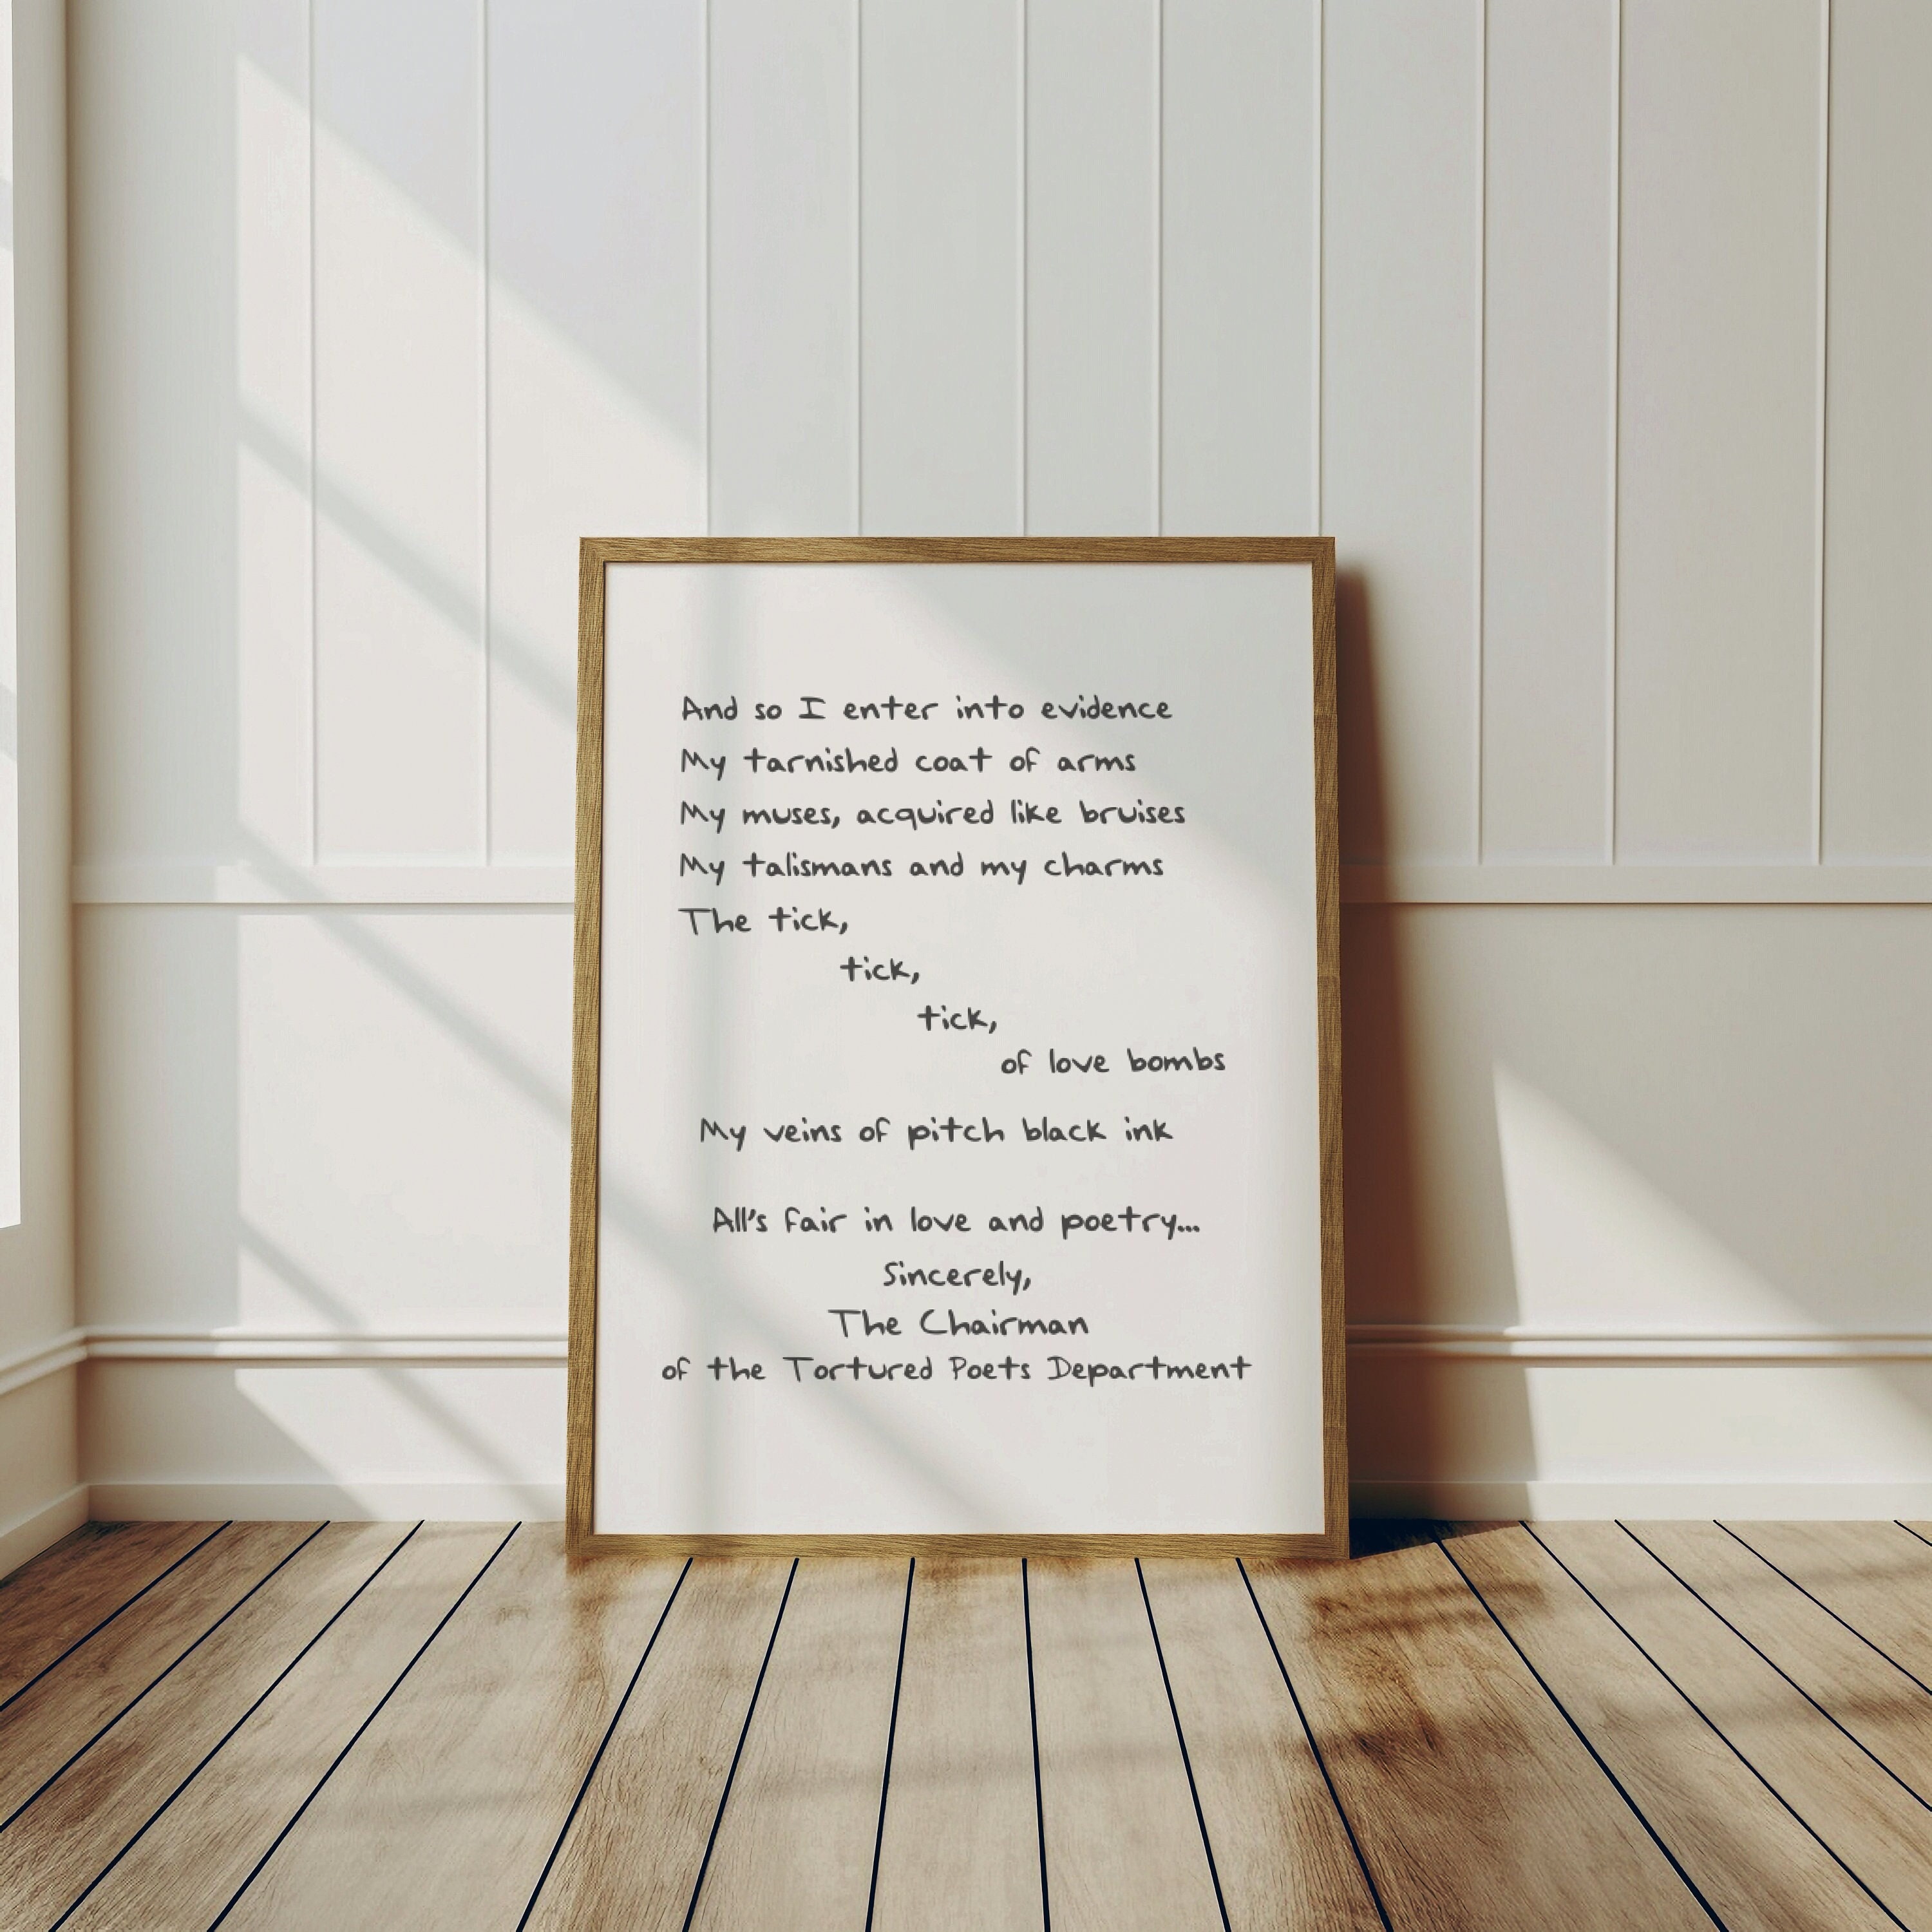 And so I enter into evidence
My tarnished coat of arms
My muses, acquired like bruises
My talismans and my charms
The tick,
tick,
tick,
of love bombs
My veins of pitch black ink
All's fair in love and poetry...
Sincerely,
The Chairman
of the Tortured Poets Department